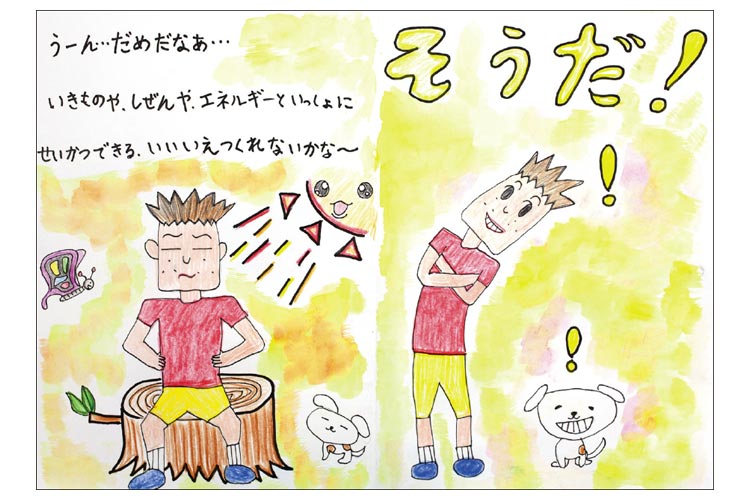 うーん…だめだなぁ…
いきものや、しぜんや、エネルギーといっしょに
せいかつできる、いいいえつくれないかな〜
そうだ!
!
!